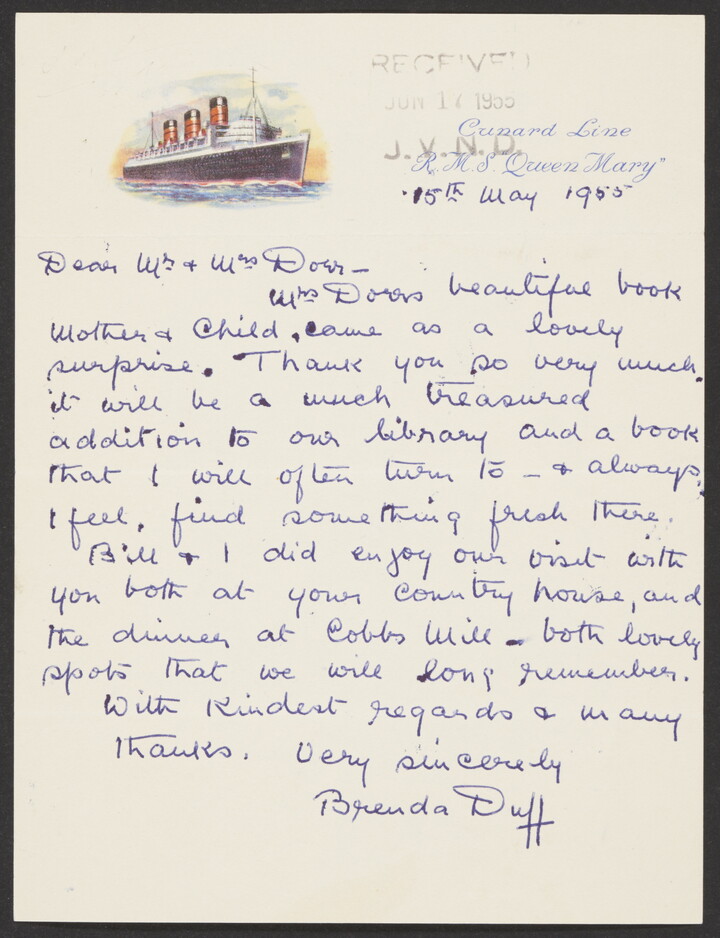 RECEIVED
JUN 17 1955
J.V.N.D.
Cunard Line
R.M.S. "Queen Mary"
15th May 1955
Dear Mr & Mrs Dorr –
Mrs Dorrs beautiful book
Mother & Child, came as a lovely
surprise. Thank you so very much.
it will be a much treasured
addition to our library and a book
that I will often turn to – & always,
I feel, find something fresh there.
Bill & I did enjoy our visit with
you both at your country house, and
the dinner at Cobbs Mill – both lovely
spots that we will long remember.
With kindest regards & many
thanks. Very sincerely
Brenda Duff